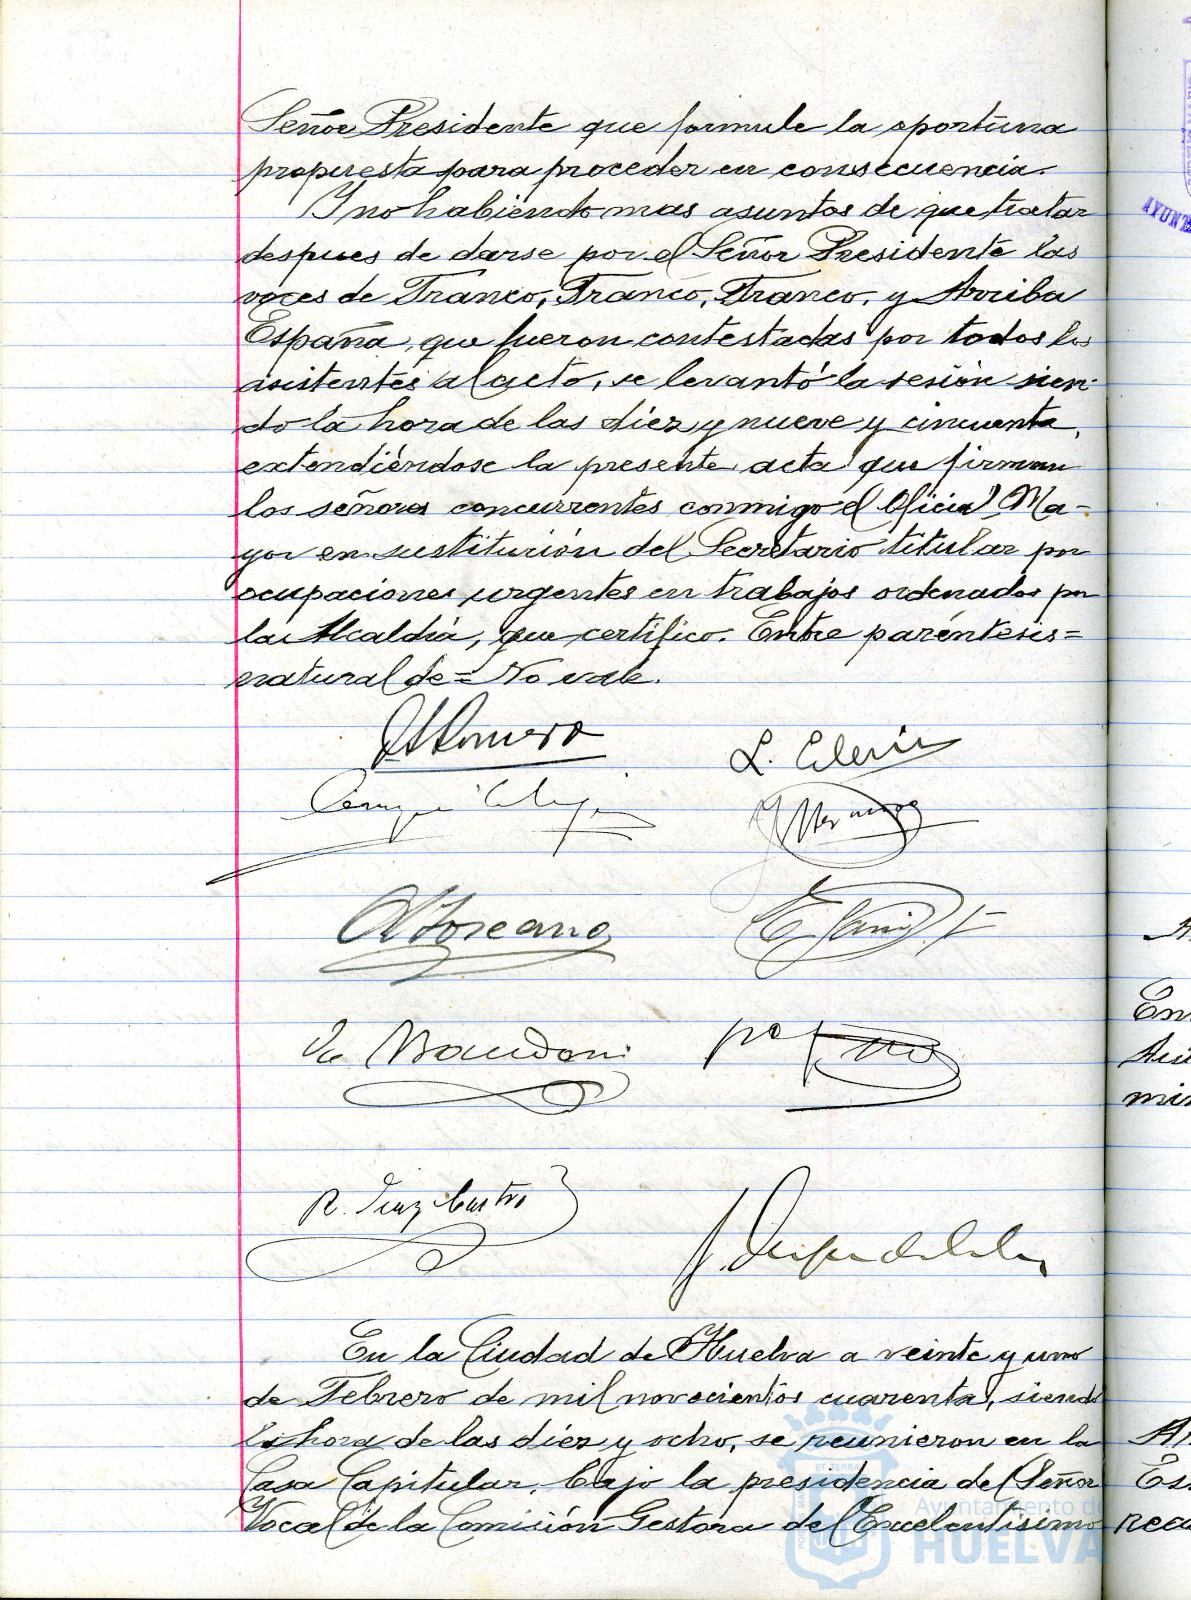 Señor Presidente que formule la oportuna
propuesta para proceder en consecuencia.
Y no habiendo mas asuntos de que tratar
despues de darse por el Señor Presidente las
voces de Franco, Franco, Franco, y Arriba
España, que fueron contestadas por todos los
asistentes al acto, se levantó la sesión sien-
do la hora de las diez y nueve y cincuenta,
extendiéndose la presente acta que firman
los señores concurrentes conmigo el Oficial Ma-
yor en sustitución del Secretario titular por
ocupaciones urgentes en trabajos ordenados por
la Alcaldía, que certifico. Entre paréntesis=
natural de= No vale.
Romero
L.
R. Diaz Castro
En la Ciudad de Huelva a veinte y uno
de Febrero de mil novecientos cuarenta, siendo
la hora de las diez y ocho, se reunieron en la
Casa Capitular, bajo la presidencia del Señor
Vocal de la Comisión Gestora del Excelentísimo
Ayuntamiento de
HUELVA